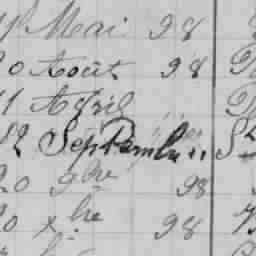 Mai 98
0 Août 98
11 Avril " "
12 Septembre " "
20 9bre 98
20 Xbre 98